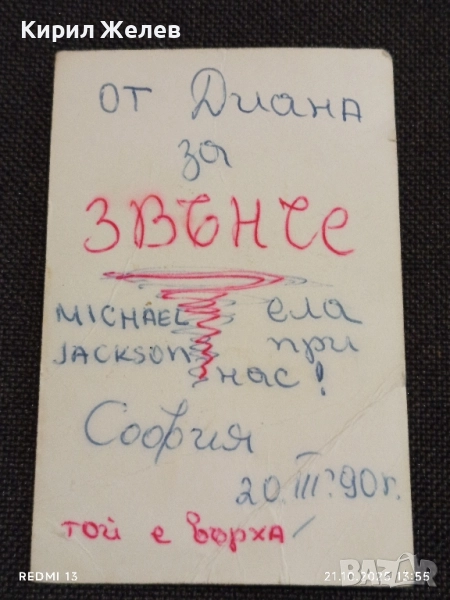 Кирил Желев
от Диана
за
ЗВЪНЧЕ
MICHAEL ела
JACKSON при
нас!
София
20.III.90г.
той е върха
REDMI 13
21.10.2025 13:55
BAZAR